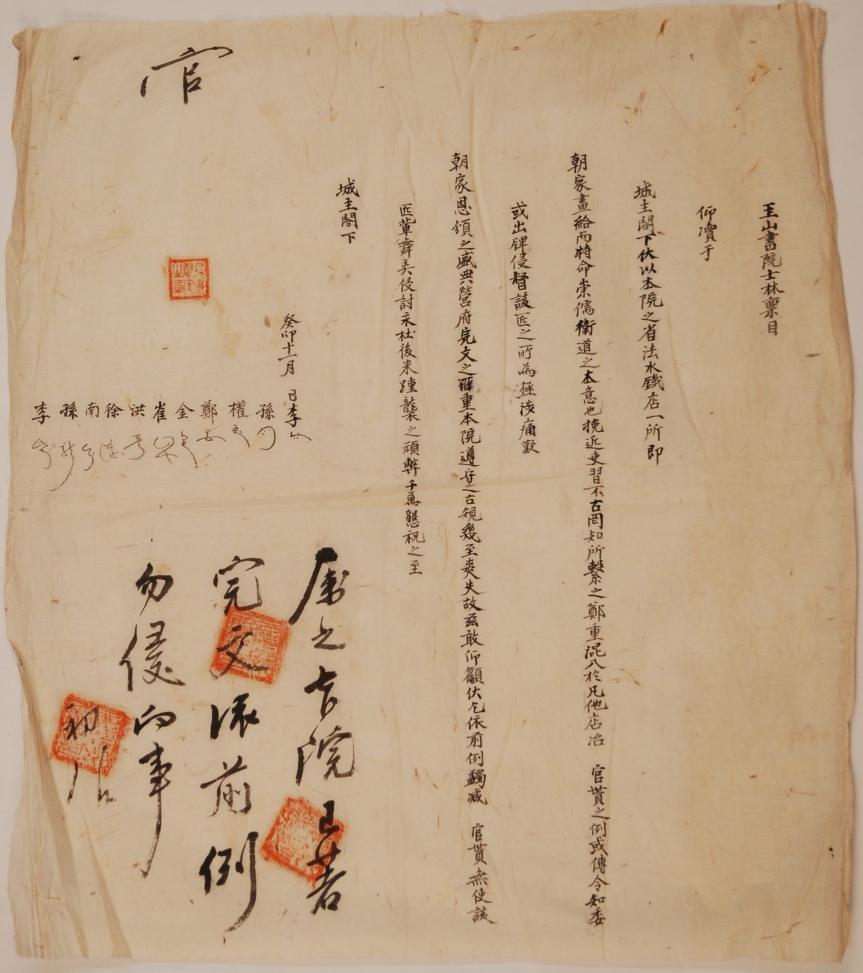 玉山書院士林稟目
仰凟于
城主閤下伏以本院之省法水鐵店一所卽
朝家畫給而特命崇儒衛道之本意也挽近吏習不古罔知所繫之鄭重混入於凡他店冶 官貰之例或傳令知委
或出牌侵督該匠之所爲極涉痛歎
朝家恩頒之盛典營府完文之嚴重本院遵守之古䂓幾至喪失故玆敢仰籲伏乞依前例蠲减 官貰無使該
匠輩舞弄侵討永杜後來踵襲之頑弊千萬懇祝之至
城主閤下
癸卯十二月 日李
孫
權
鄭
金
崔
洪
徐
南
孫
李
官
屬之古院且著
完文依前例
勿侵向事
初